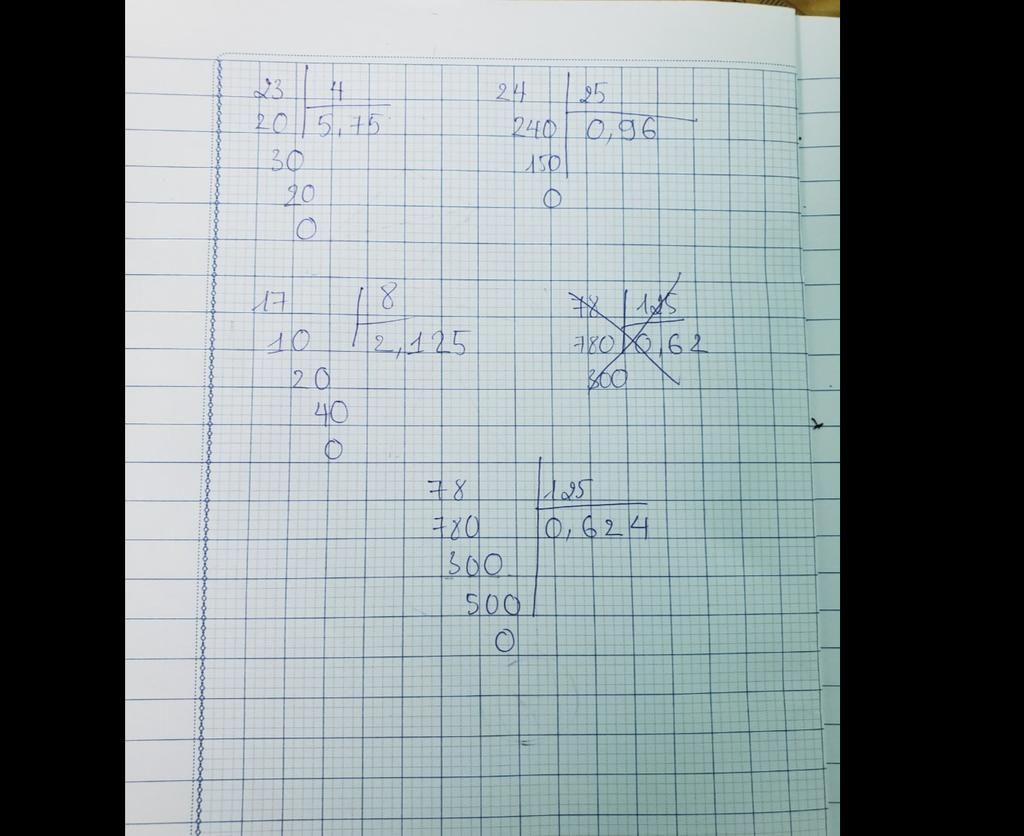 23 4
20 5,75
30
20
0
24 25
240 0,96
150
0
17 8
10 2,125
20
40
0
78 125
780 0,62
300
78 125
780 0,624
300
500
0